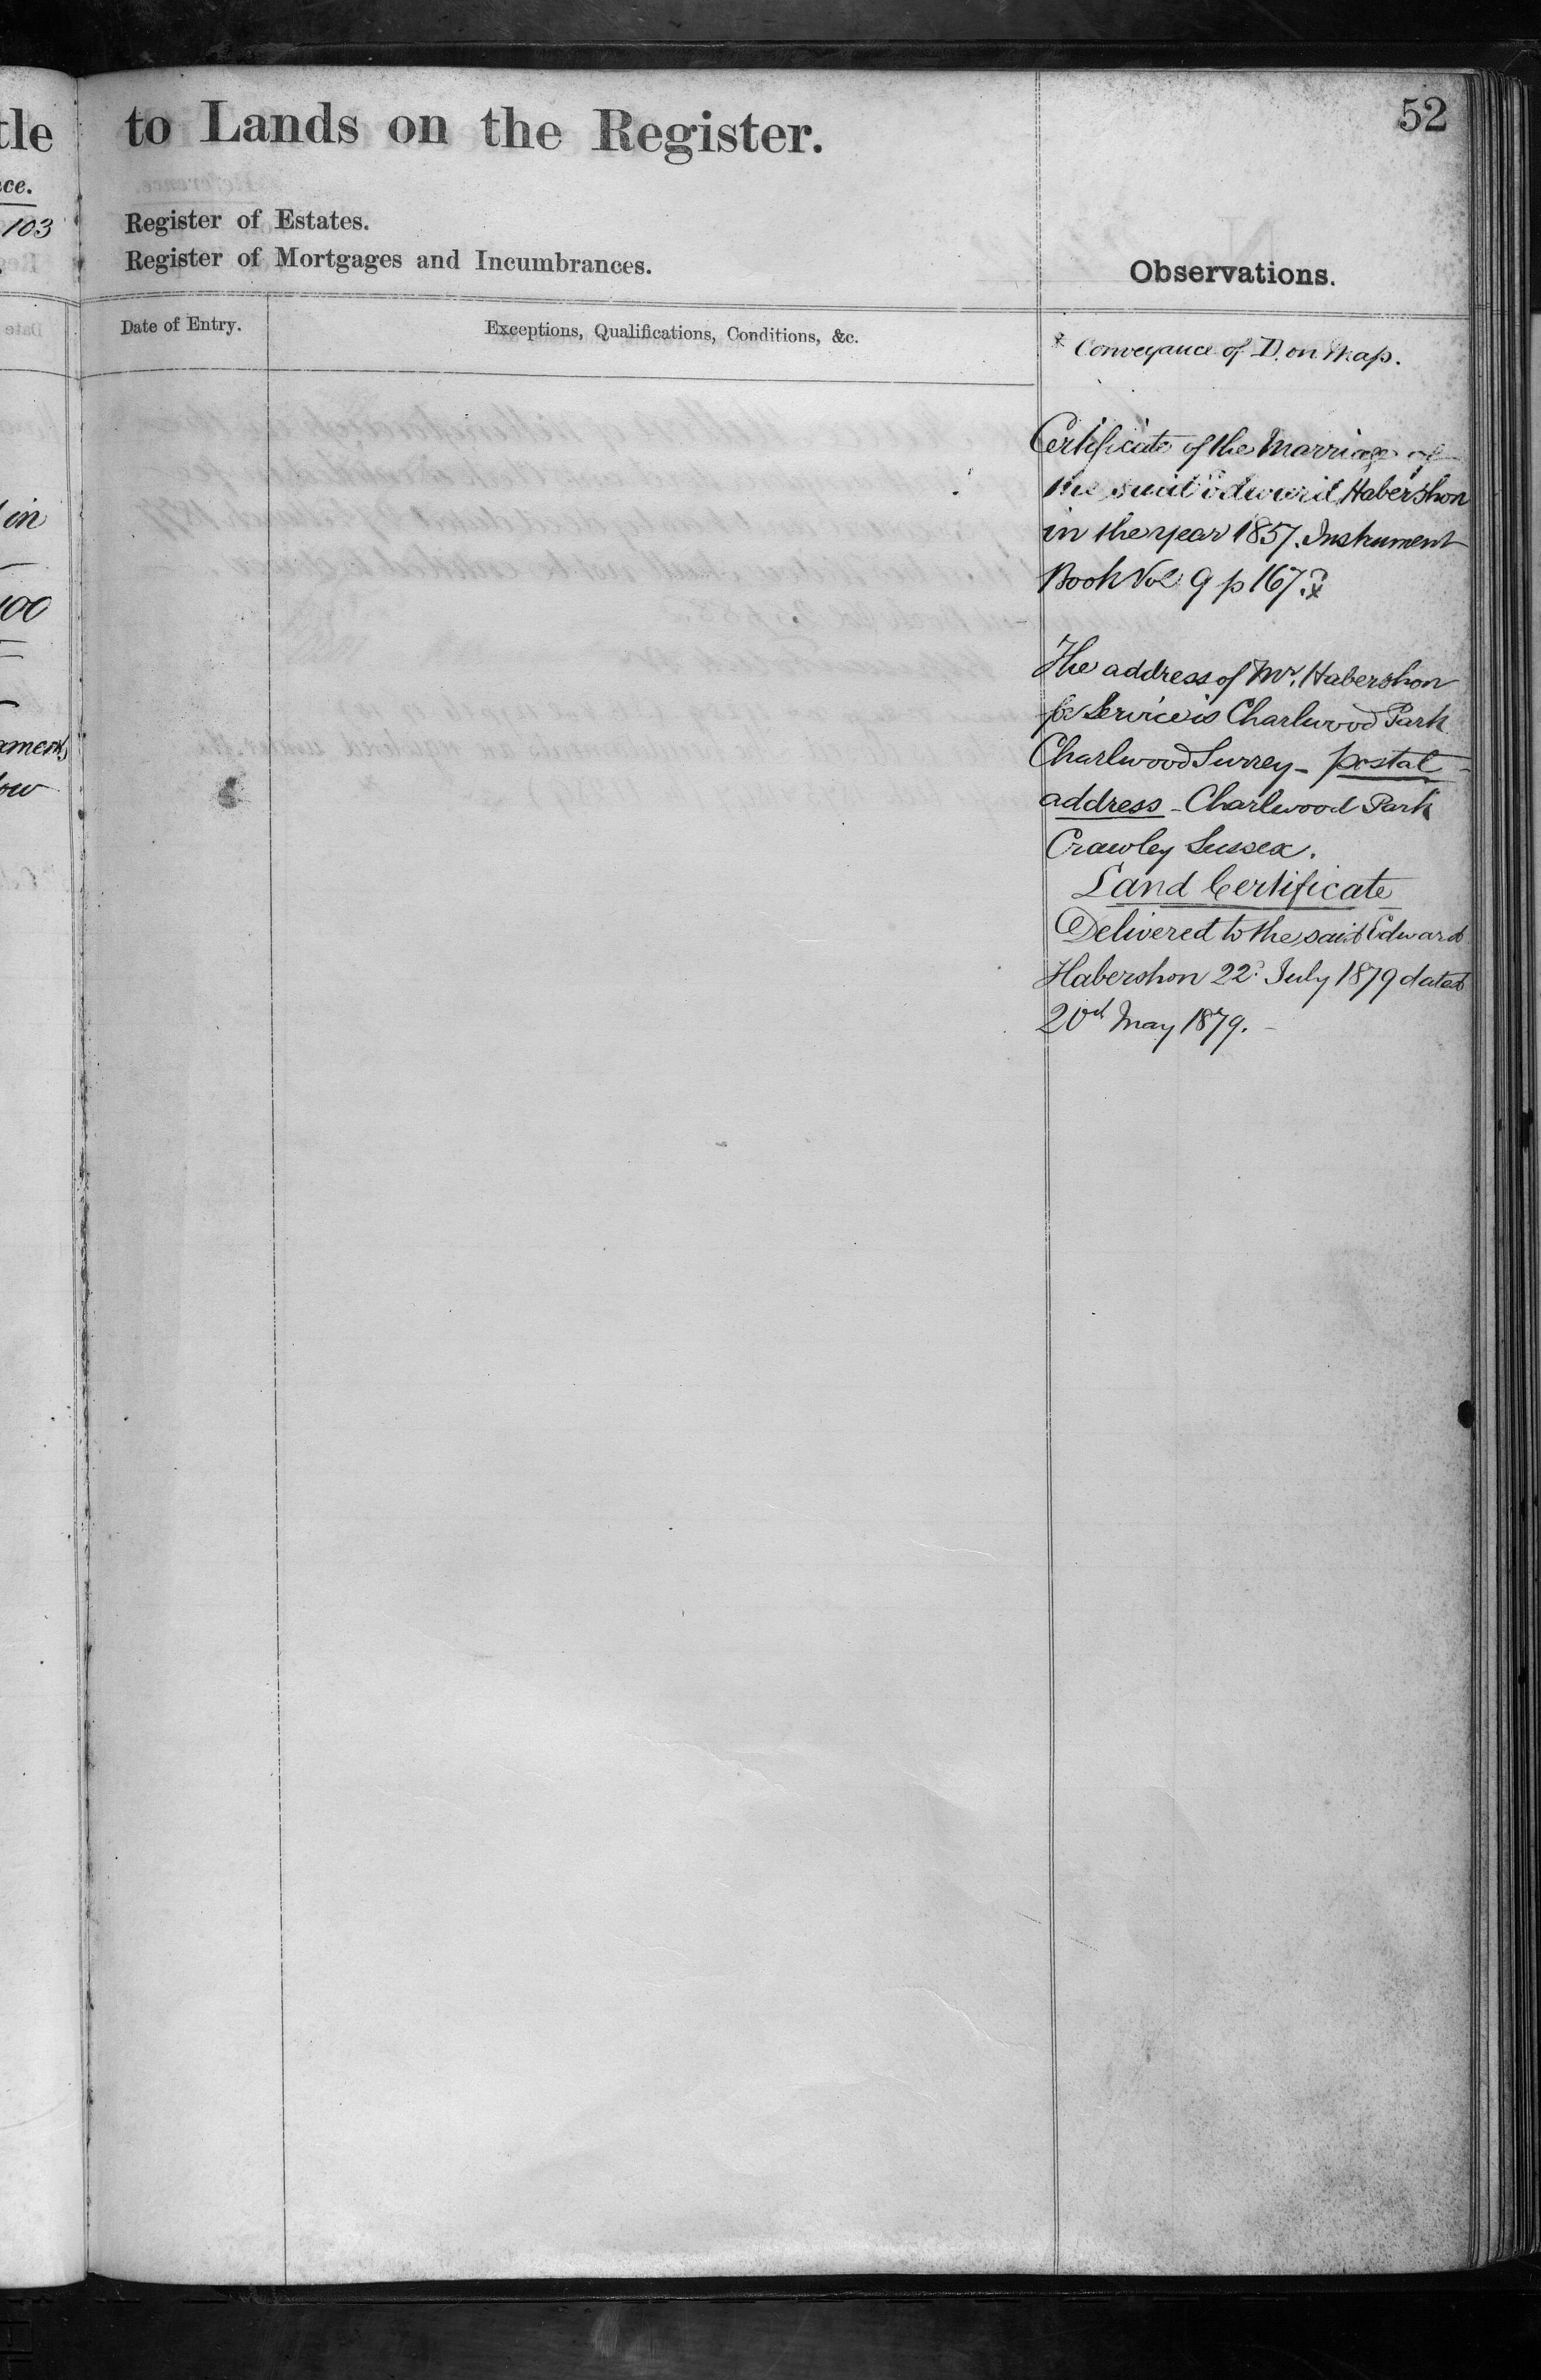 tle
ce.
103
in
100
ow
to Lands on the Register.
52
Register of Estates.
Register of Mortgages and Incumbrances.
Observations.
Date of Entry.
Exceptions, Qualifications, Conditions, &c.
x Conveyance of D. on Map.
Certificate of the Marriage of
the said Edward Habershon
in the year 1857. Instrument
Book Vol 9 p 167. x
The address of Mr. Habershon
for Service is Charlwood Park
Charlwood Surrey - postal
address - Charlwood Park
Crawley Sussex.
Land Certificate
Delivered to the said Edward
Habershon 22d July 1879 dated
20d May 1879. -